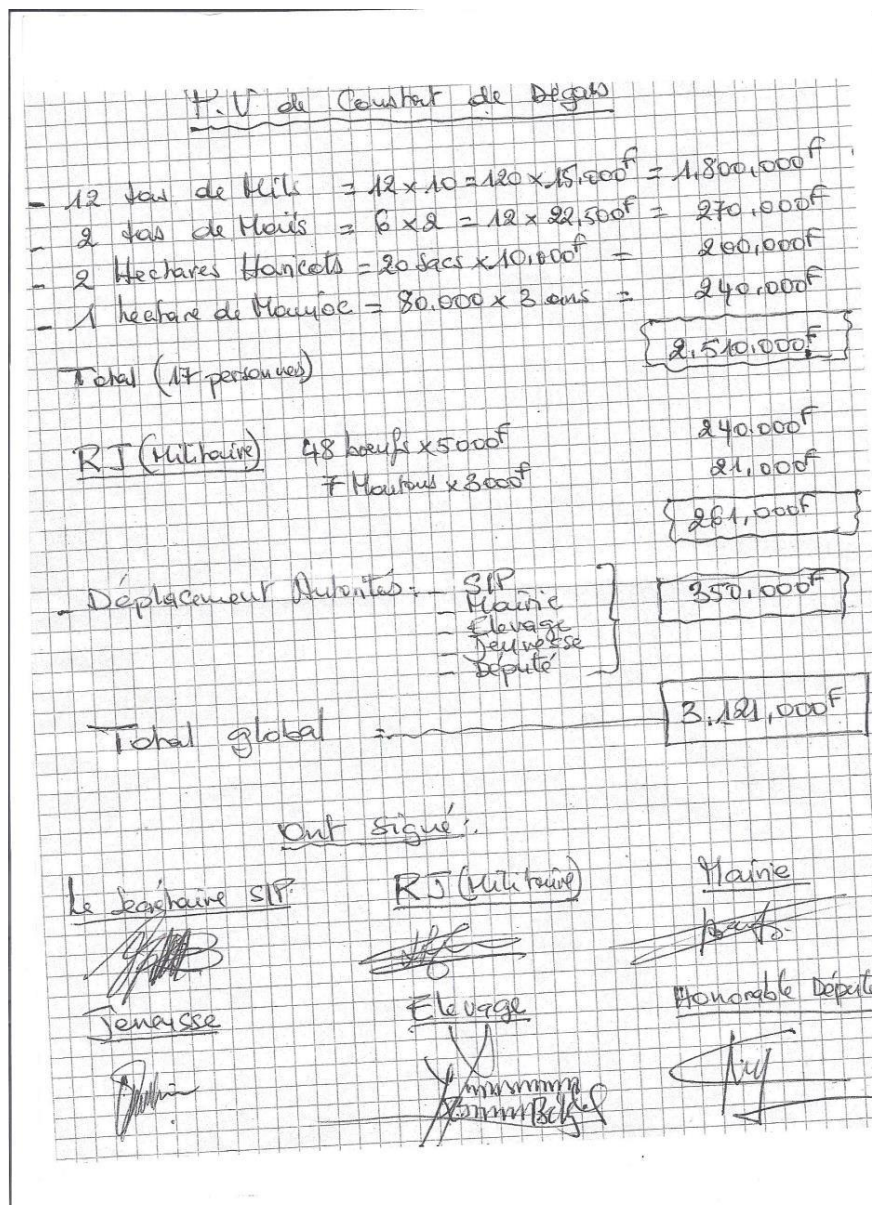 P.V de Constat de Dégats
- 12 tas de Mils = 12 x 10 = 120 x 15.000F = 1.800,000F
- 2 tas de Maïs = 6 x 2 = 12 x 22,500F = 270.000F
- 2 Hectares Haricots = 20 sacs x 10.000F = 200,000F
- 1 hectare de Manioc = 80.000 x 3 ans = 240.000F
Total (17 personnes) 2.510.000F
RJ (Militaire) 48 boeufs x 5000F 240.000F
7 Moutons x 3000F 21,000F
261,000F
- Déplacement Autorités: - S/P 350.000F
- Mairie
- Elevage
- Jeunesse
- Député
Total global = 3.121,000F
Ont signé:
Le Secrétaire S/P. RJ (Militaire) Mairie
Jeneusse Elevage Honorable Député